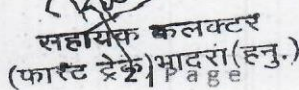 सहायक कलक्टर
(फास्ट ट्रेक) भादरा (हनु.)
2 | Page